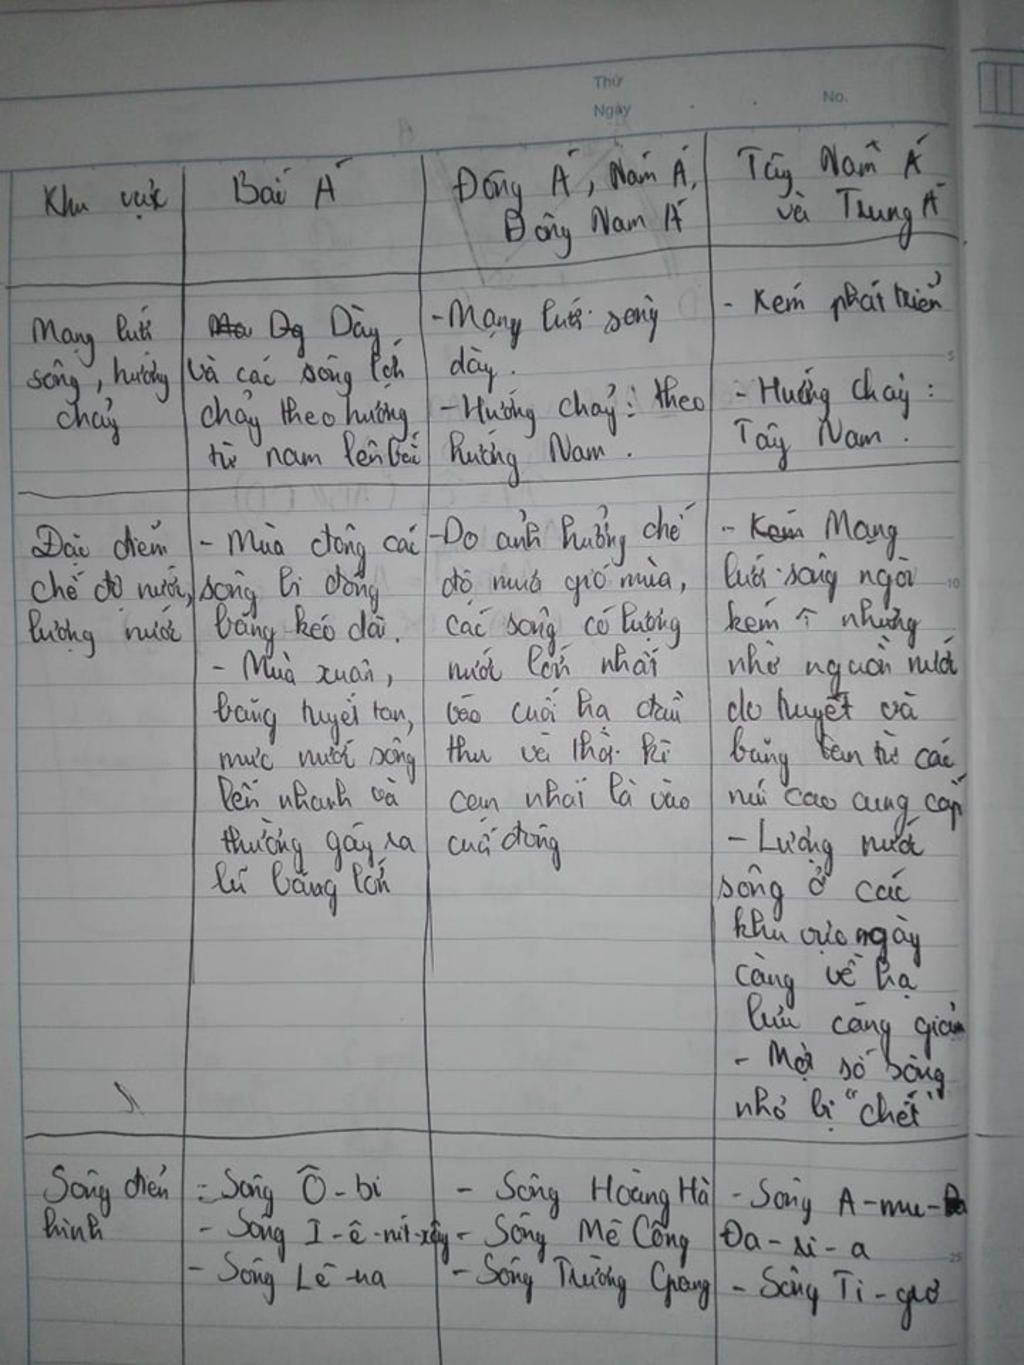 Thứ
Ngày
No.
Khu vực
Bắc Á
Đông Á, Nam Á,
Đông Nam Á
Tây Nam Á
và Trung Á
Mạng lưới
sông, hướng
chảy
Dày
và các sông lớn
chảy theo hướng
từ nam lên bắc
- Mạng lưới sông
dày.
- Hướng chảy: theo
hướng Nam.
- Kém phát triển
- Hướng chảy:
Tây Nam.
Đặc điểm
chế độ nước,
lượng nước
- Mùa đông các
sông bị đóng
băng kéo dài.
- Mùa xuân,
băng tuyết tan,
mực nước sông
lên nhanh và
thường gây ra
lũ băng lớn
- Do ảnh hưởng chế
độ mưa gió mùa,
các sông có lượng
nước lớn nhất
vào cuối hạ đầu
thu và thời kì
cạn nhất là vào
cuối đông
- Mạng
lưới sông ngòi
kém nhưng
nhờ nguồn nước
do tuyết và
băng tan từ các
núi cao cung cấp
- Lượng nước
sông ở các
khu vực ngày
càng về hạ
lưu càng giảm
- Một số sông
nhỏ bị "chết"
Sông điển
hình
- Sông Ô-bi
- Sông I-ê-nít-xây
- Sông Lê-na
- Sông Hoàng Hà
- Sông Mê Công
- Sông Trường Giang
- Sông A-mu-
Đa-ri-a
- Sông Ti-grơ
5
10
25